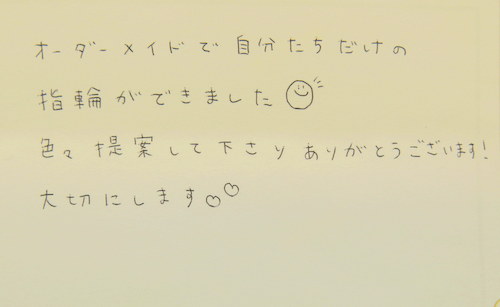 オーダーメイドで自分たちだけの
指輪ができました
色々提案して下さりありがとうございます!
大切にします♡♡